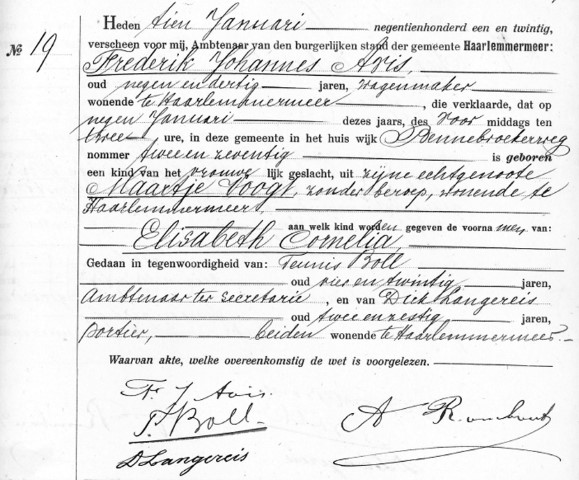 Heden tien Januari negentienhonderd een en twintig,
№ 19 verscheen voor mij, Ambtenaar van den burgerlijken stand der gemeente Haarlemmermeer:
Frederik Johannes Avis,
oud negen en dertig jaren, wagenmaker
wonende te Haarlemmermeer, die verklaarde, dat op
negen Januari dezes jaars, des voor middags ten
twee ure, in deze gemeente in het huis wijk Bennebroekerweg
nommer twee en zeventig is geboren
een kind van het vrouwe lijk geslacht, uit zijne echtgenoote
Maartje Voogt, zonder beroep, wonende te
Haarlemmermeer,
aan welk kind worden gegeven de voorna men van:
Elisabeth Cornelia,
Gedaan in tegenwoordigheid van: Teunis Boll
oud vier en twintig jaren,
Ambtenaar ter secretarie, en van Dirk Langereis
oud twee en zestig jaren,
portier, beiden wonende te Haarlemmermeer.
Waarvan akte, welke overeenkomstig de wet is voorgelezen.
Fr J Avis.
T. Boll
D Langereis
A